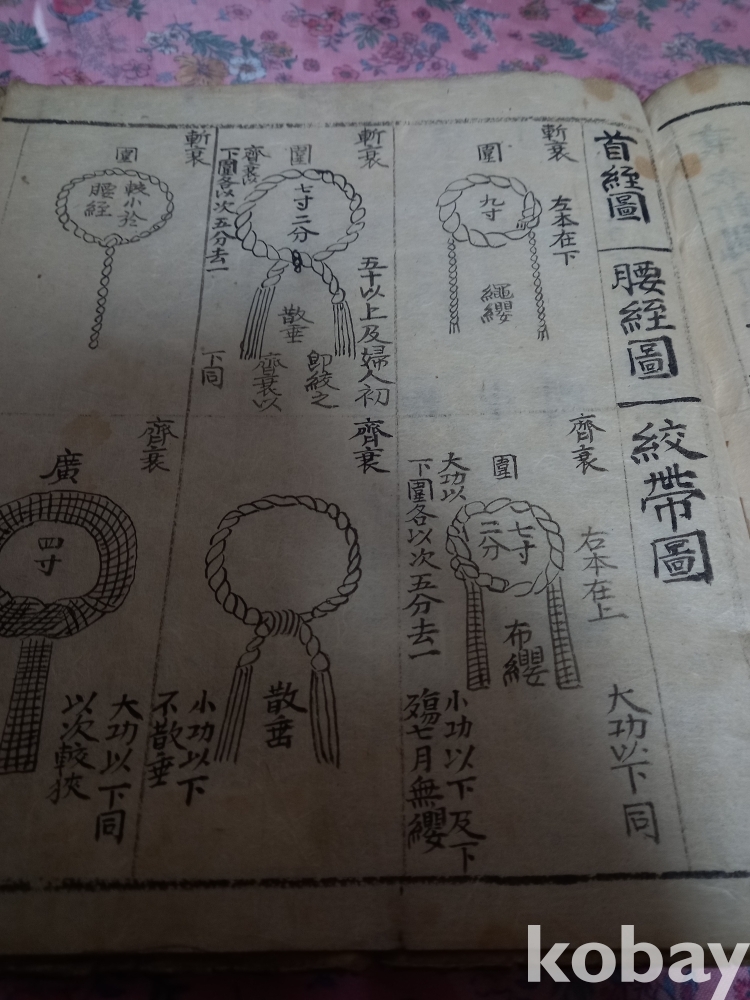 首絰圖
腰絰圖
絞帶圖
斬衰
圍
九寸
左本在下
繩纓
齊衰
圍
七寸
二分
右本在上
布纓
大功以
下圍各以次五分去一
大功以下同
小功以下及下
殤七月無纓
斬衰
圍
七寸二分
齊衰以
下圍各以次五分去一
散垂
五十以上及婦人初
即絞之
齊衰以
下同
齊衰
散垂
小功以下
不散垂
斬衰
圍
較小於
腰絰
齊衰
廣
四寸
大功以下同
以次較狹
kobay